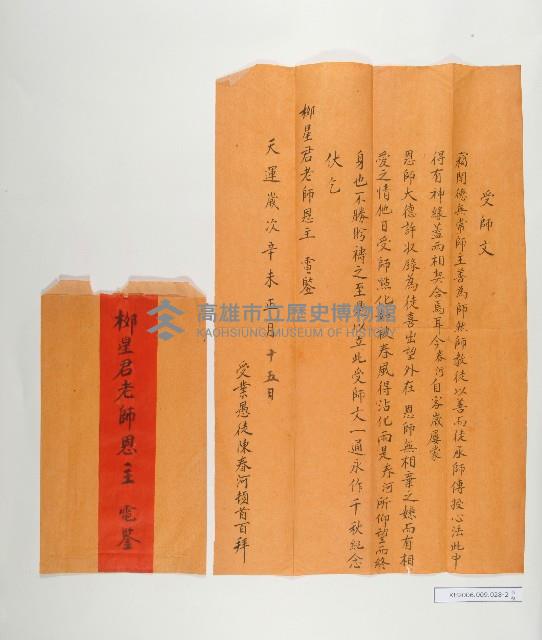 受師文
竊聞德無常師主善為師然師教徒以善而徒承師傳授心法此中
得有神緣蓋而相契合焉耳今春河自客歲屢蒙
恩師大德許收錄為徒喜出望外在 恩師無相棄之嫌而有相
愛之情他日受師點化被春風得沾化雨是春河所仰望而終
身也不勝盼禱之至是以立此受師文一通永作千秋紀念
伏乞
柳星君老師恩主 電鑒
天運歲次辛未正月十五日
受業愚徒陳春河頓首百拜
柳星君老師恩主 電鑒
高雄市立歷史博物館
KAOHSIUNG MUSEUM OF HISTORY
KH2006.009.028-2